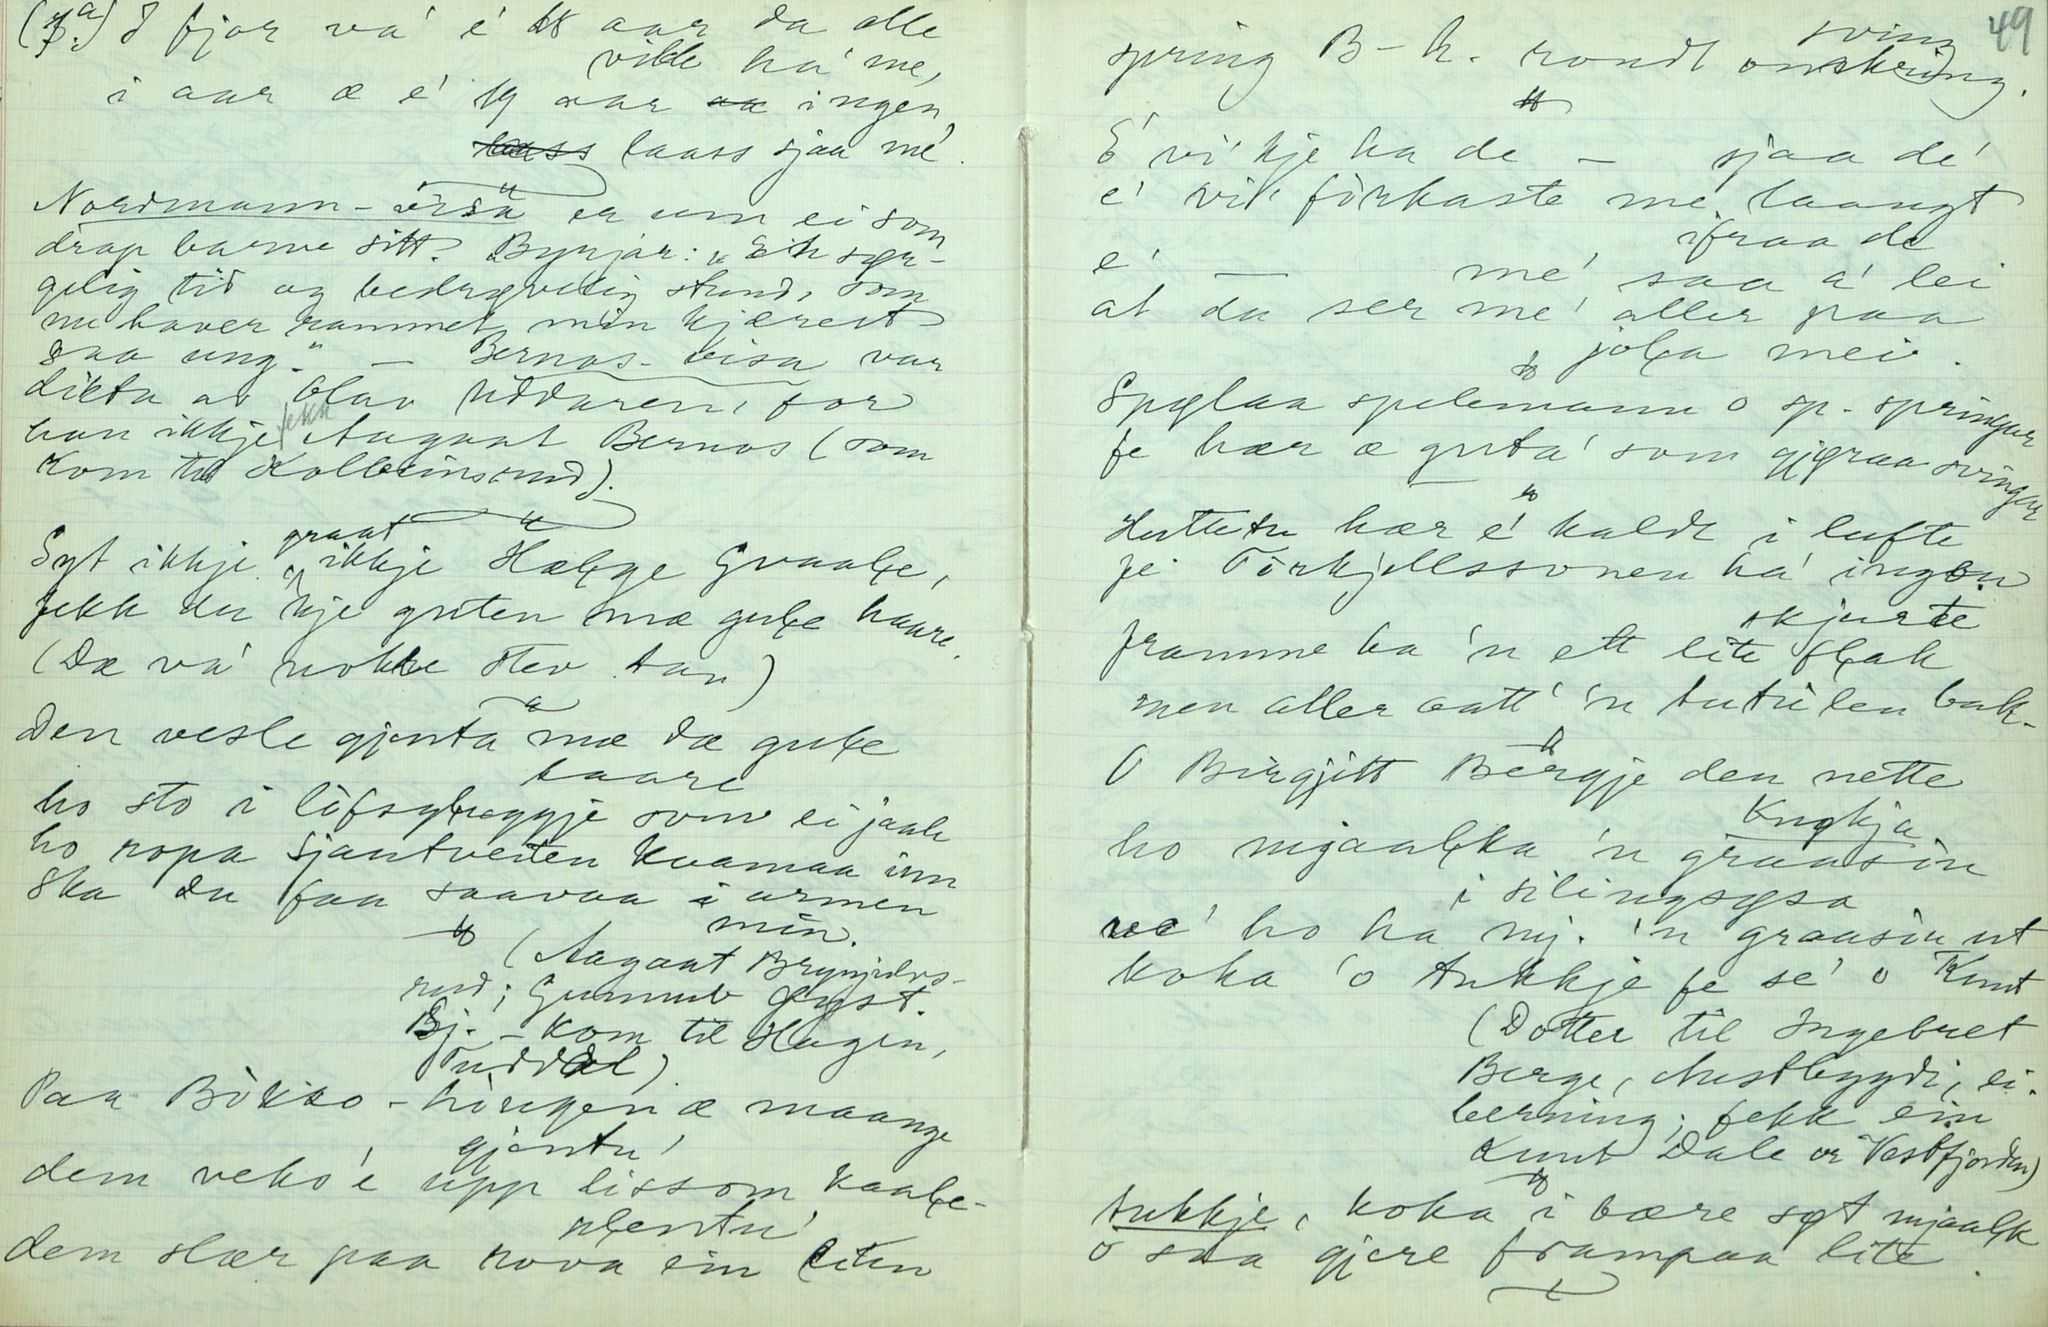 I fjor va' e' 18 aar da alle
ville ha' me,
i aar æ e' 19 aar ingen
laass sjaa me'.
Nordmann-visa er um ei som
drap barne sitt. Byrjar: "Eih sør-
gelig tid og bedrøvelig stund, som
nu haver rammet min kjærest
saa ung." — Bernos-visa var
dikta av Olav Uddaren, for
han ikkje fekk Aagaat Bernos (som
kom til Kolbeinsrud).
Syt ikkje graat ikkje Hæłge Gvaałe,
fekk du kje guten mæ gułe haare.
(Dæ va' nokre stev tau)
Den vesle gjenta mæ dæ gułe
haare
ho sto i
som ei jaak
ho ropa Sjautveiten kvamaa inn
ska du faa saavaa i armen
min.
(Aagaat Brynjuls-
rud; Gunnub Øyst.
Bj. - kom til Hagen,
Tuddal)
Paa Bøkko-hingen æ maange
gjentu'
dem veks'e upp lissom kaałe-
płentu'
dem slær paa nova ein liten
49
spring B-h. rondt omkring.
sving
E' vi' kje ha de — sjaa de'
e' vil firkaste me laangt
ifraa de
e' — me' saa a' lei
at du ser me' aller paa
jołа mei.
Spełaa spelemann o sp. springar
fe hær æ guta' som gjøraa svingar
Huttetu hær e' kaldt i lufte
fe Torkjellssonen ha' ingen
skjurte
framme ha 'n ett lite fłak
men aller aatt 'n tutulen bak-
O Birgjitt Bergje den nette
Knøkja
ho mjaałka 'n graasin
i silingsøsa
ve' ho ha mj. 'n graasin ut
koka 'o tukkje fe se' o Knut
(Dotter til Ingebret
Berge, Austbygdi, ei.
berning; fekk ein
Knut Dale or Vestfjorden)
tukkje, koka i bære søt mjaałk
o saa gjere frampaa lite.